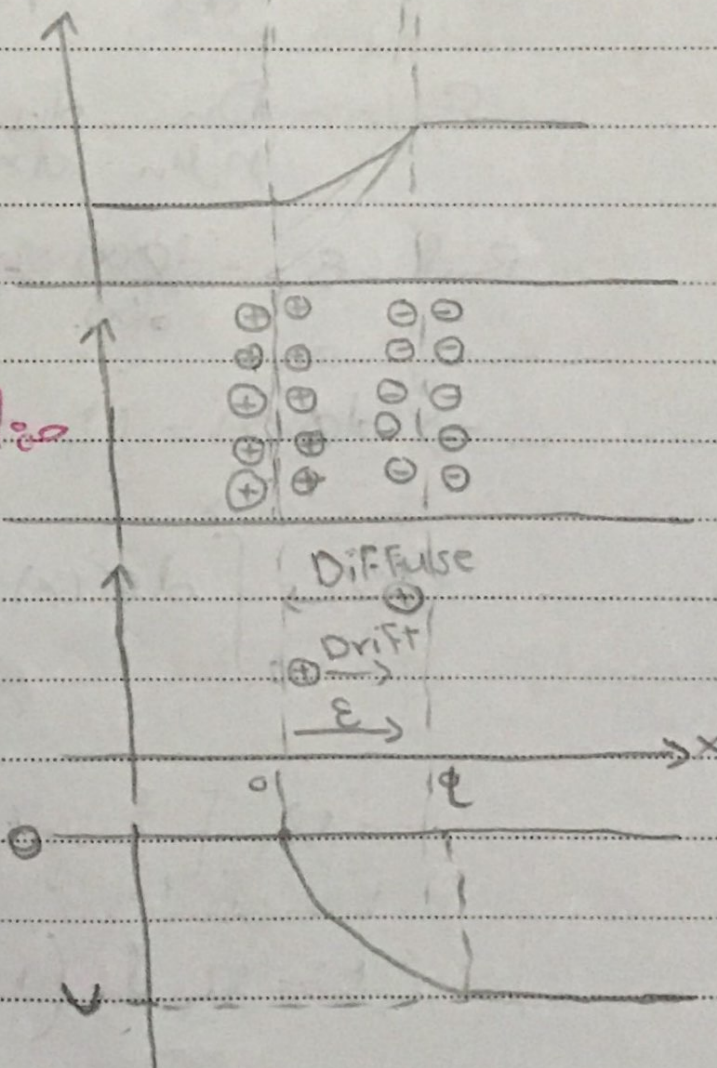 ⊕ ⊕ ⊖ ⊖
⊕ ⊕ ⊖ ⊖
⊕ ⊕ ⊖ ⊖
⊕ ⊕ ⊖
⊕ ⊕ ⊖ ⊖
Diffulse
⊕
Drift
⊕
ε
x
0
V